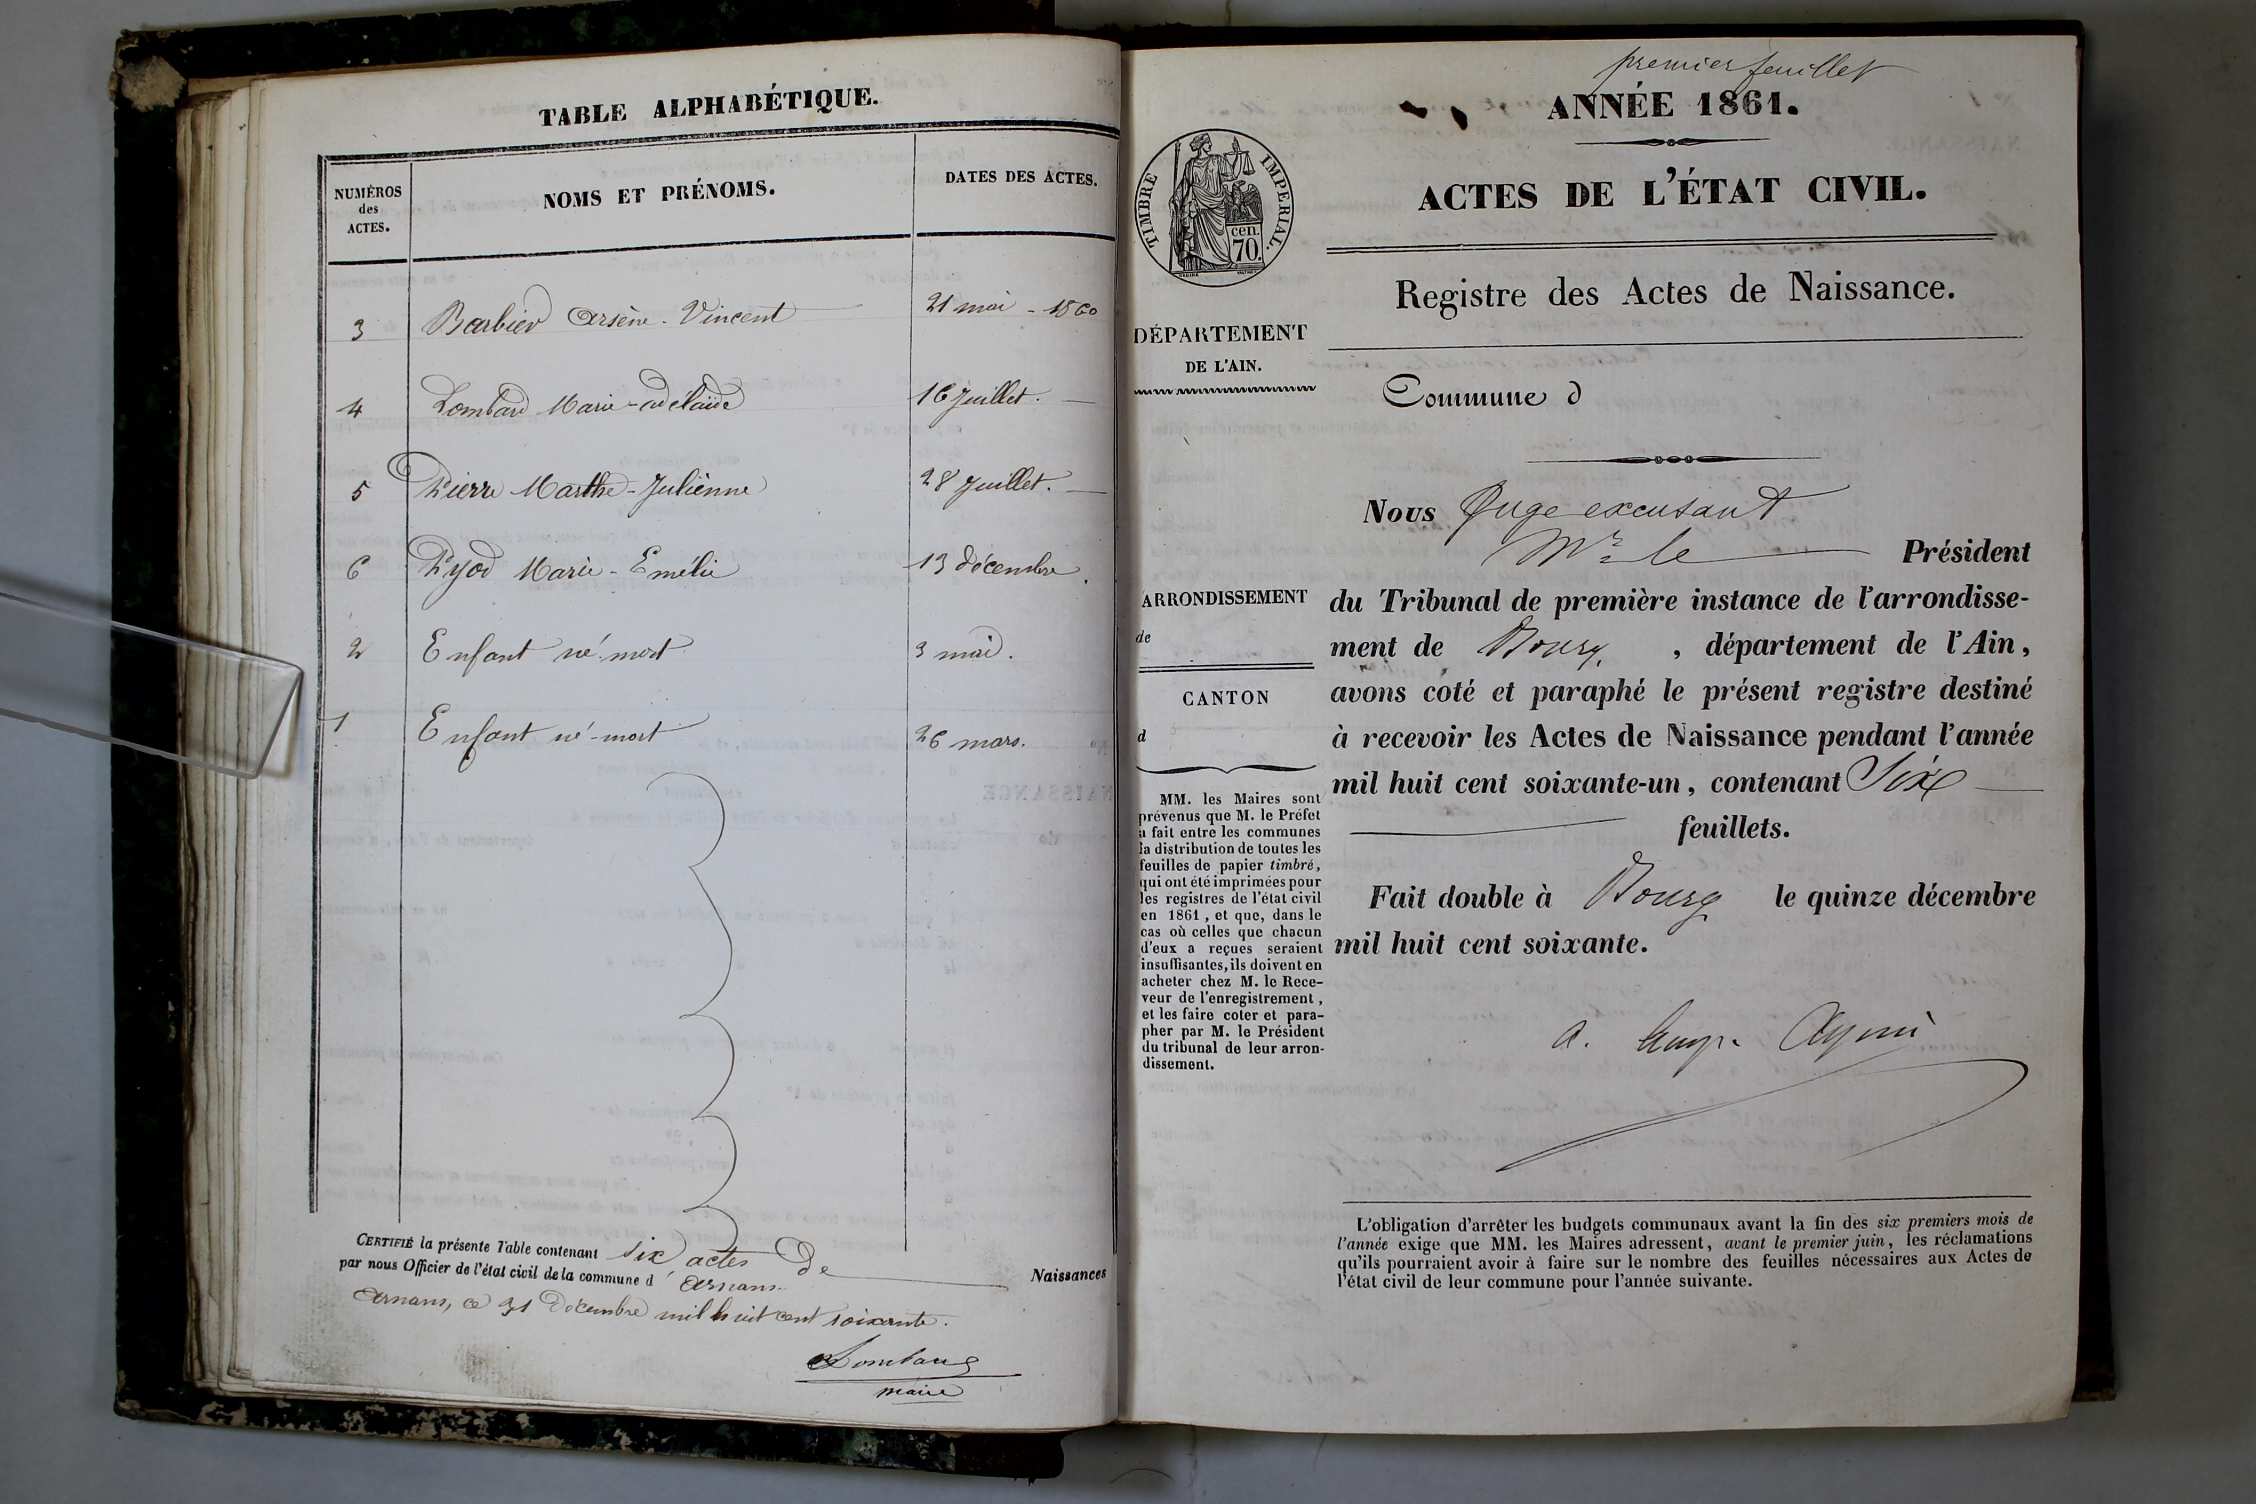 TABLE ALPHABÉTIQUE.
NUMÉROS
des
ACTES.
NOMS ET PRÉNOMS.
DATES DES ACTES.
3 Barbier Arsène-Vincent 21 mai - 1860
4 Lombard Marie-adelaïde 16 Juillet.
5 Pierre Marthe-Julienne 28 Juillet.
6 Pyod Marie-Emélie 13 décembre.
2 Enfant né-mort 3 mai.
1 Enfant né-mort 26 mars.
CERTIFIÉ la présente Table contenant six actes de Naissances
par nous Officier de l'état civil de la commune d'Arnans.
Arnans, ce 31 Décembre mil huit cent soixante.
Lombard
maire
premier feuillet
ANNÉE 1861.
ACTES DE L'ÉTAT CIVIL.
Registre des Actes de Naissance.
TIMBRE IMPÉRIAL.
cen.
70.
DÉPARTEMENT
DE L'AIN.
ARRONDISSEMENT
de
CANTON
d
MM. les Maires sont
prévenus que M. le Préfet
a fait entre les communes
la distribution de toutes les
feuilles de papier timbré,
qui ont été imprimées pour
les registres de l'état civil
en 1861, et que, dans le
cas où celles que chacun
d'eux a reçues seraient
insuffisantes, ils doivent en
acheter chez M. le Rece-
veur de l'enregistrement,
et les faire coter et para-
pher par M. le Président
du tribunal de leur arron-
dissement.
Commune d
Nous Juge excusant
Mr le Président
du Tribunal de première instance de l'arrondisse-
ment de Bourg, département de l'Ain,
avons coté et paraphé le présent registre destiné
à recevoir les Actes de Naissance pendant l'année
mil huit cent soixante-un, contenant Six
feuillets.
Fait double à Bourg le quinze décembre
mil huit cent soixante.
L'obligation d'arrêter les budgets communaux avant la fin des six premiers mois de
l'année exige que MM. les Maires adressent, avant le premier juin, les réclamations
qu'ils pourraient avoir à faire sur le nombre des feuilles nécessaires aux Actes de
l'état civil de leur commune pour l'année suivante.